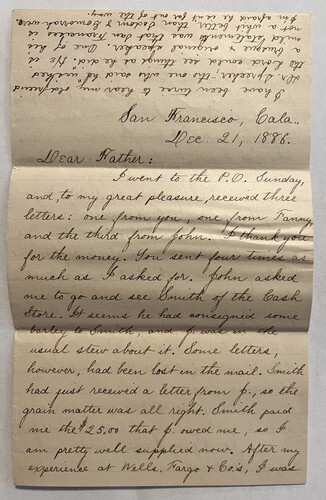 San Francisco, Cala.,
Dec. 21, 1886.
Dear Father:
I went to the P.O. Sunday,
and to my great pleasure, received three
letters: one from you, one from Fanny,
and the third from John. I thank you
for the money. You sent four times as
much as I asked for. John asked
me to go and see Smith of the Cash
Store. It seems he had consigned some
barley to Smith, and J. was in the
usual stew about it. Some letters,
however, had been lost in the mail. Smith
had just received a letter from J., so the
grain matter was all right. Smith paid
me the $25.00 that J. owed me, so I
am pretty well supplied now. After my
experience at Wells, Fargo & Co's, I was
I have been twice to hear my old friend
Dr. the one who said he "wished
the Lord could see things as he did." He is
a unique & original speaker. One of his
mild statements was that San Francisco is
not a whit better than Sodom & Gomorrah were.
I'm afraid he isn't far out of the way.